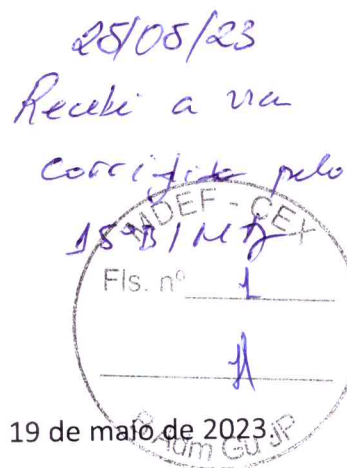 25/05/23
Recebi a via
corrigida pelo
15º BI Mtz
MDEF - CEX
Fls. nº 1
19 de maio de 2023.
B Adm Gu JP